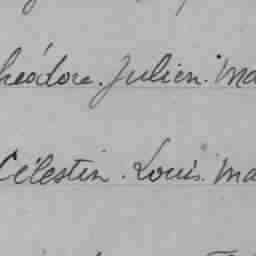 héodore. Julien. Ma
Célestin. Louis. Ma